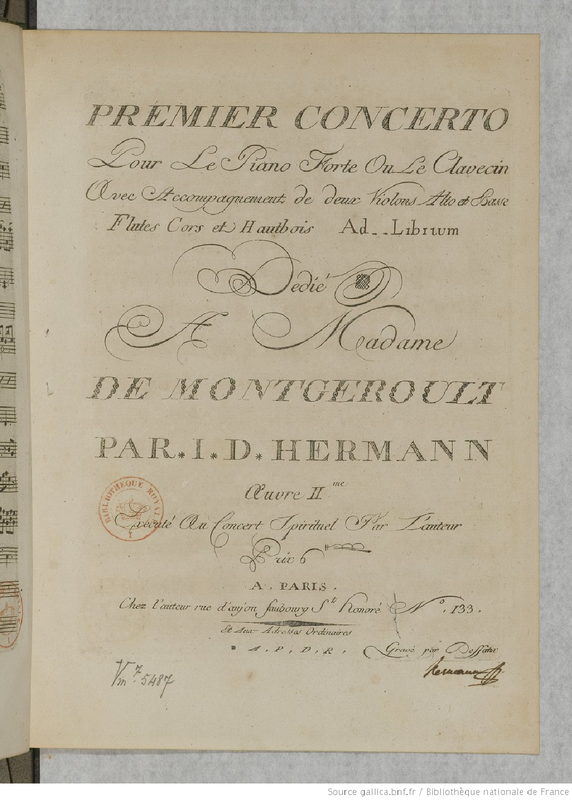 PREMIER CONCERTO
Pour Le Piano Forte Ou Le Clavecin
Avec Accompagnement de deux Violons Alto et Basse
Flutes Cors et Hautbois Ad--Libitum
Dedié
A Madame
DE MONTGEROULT
PAR. I. D. HERMANN
Œuvre II me
BIBLIOTHEQUE ROYALE
Executé Au Concert Spirituel Par L'auteur
Prix 6
A. PARIS.
Chez l'auteur rue d'anjou faubourg St. Honoré N°. 133.
Et Aux Adresses Ordinaires
A. P. D. R. Gravé par
Vm 7. 5487
Hermann
Source gallica.bnf.fr / Bibliothèque nationale de France